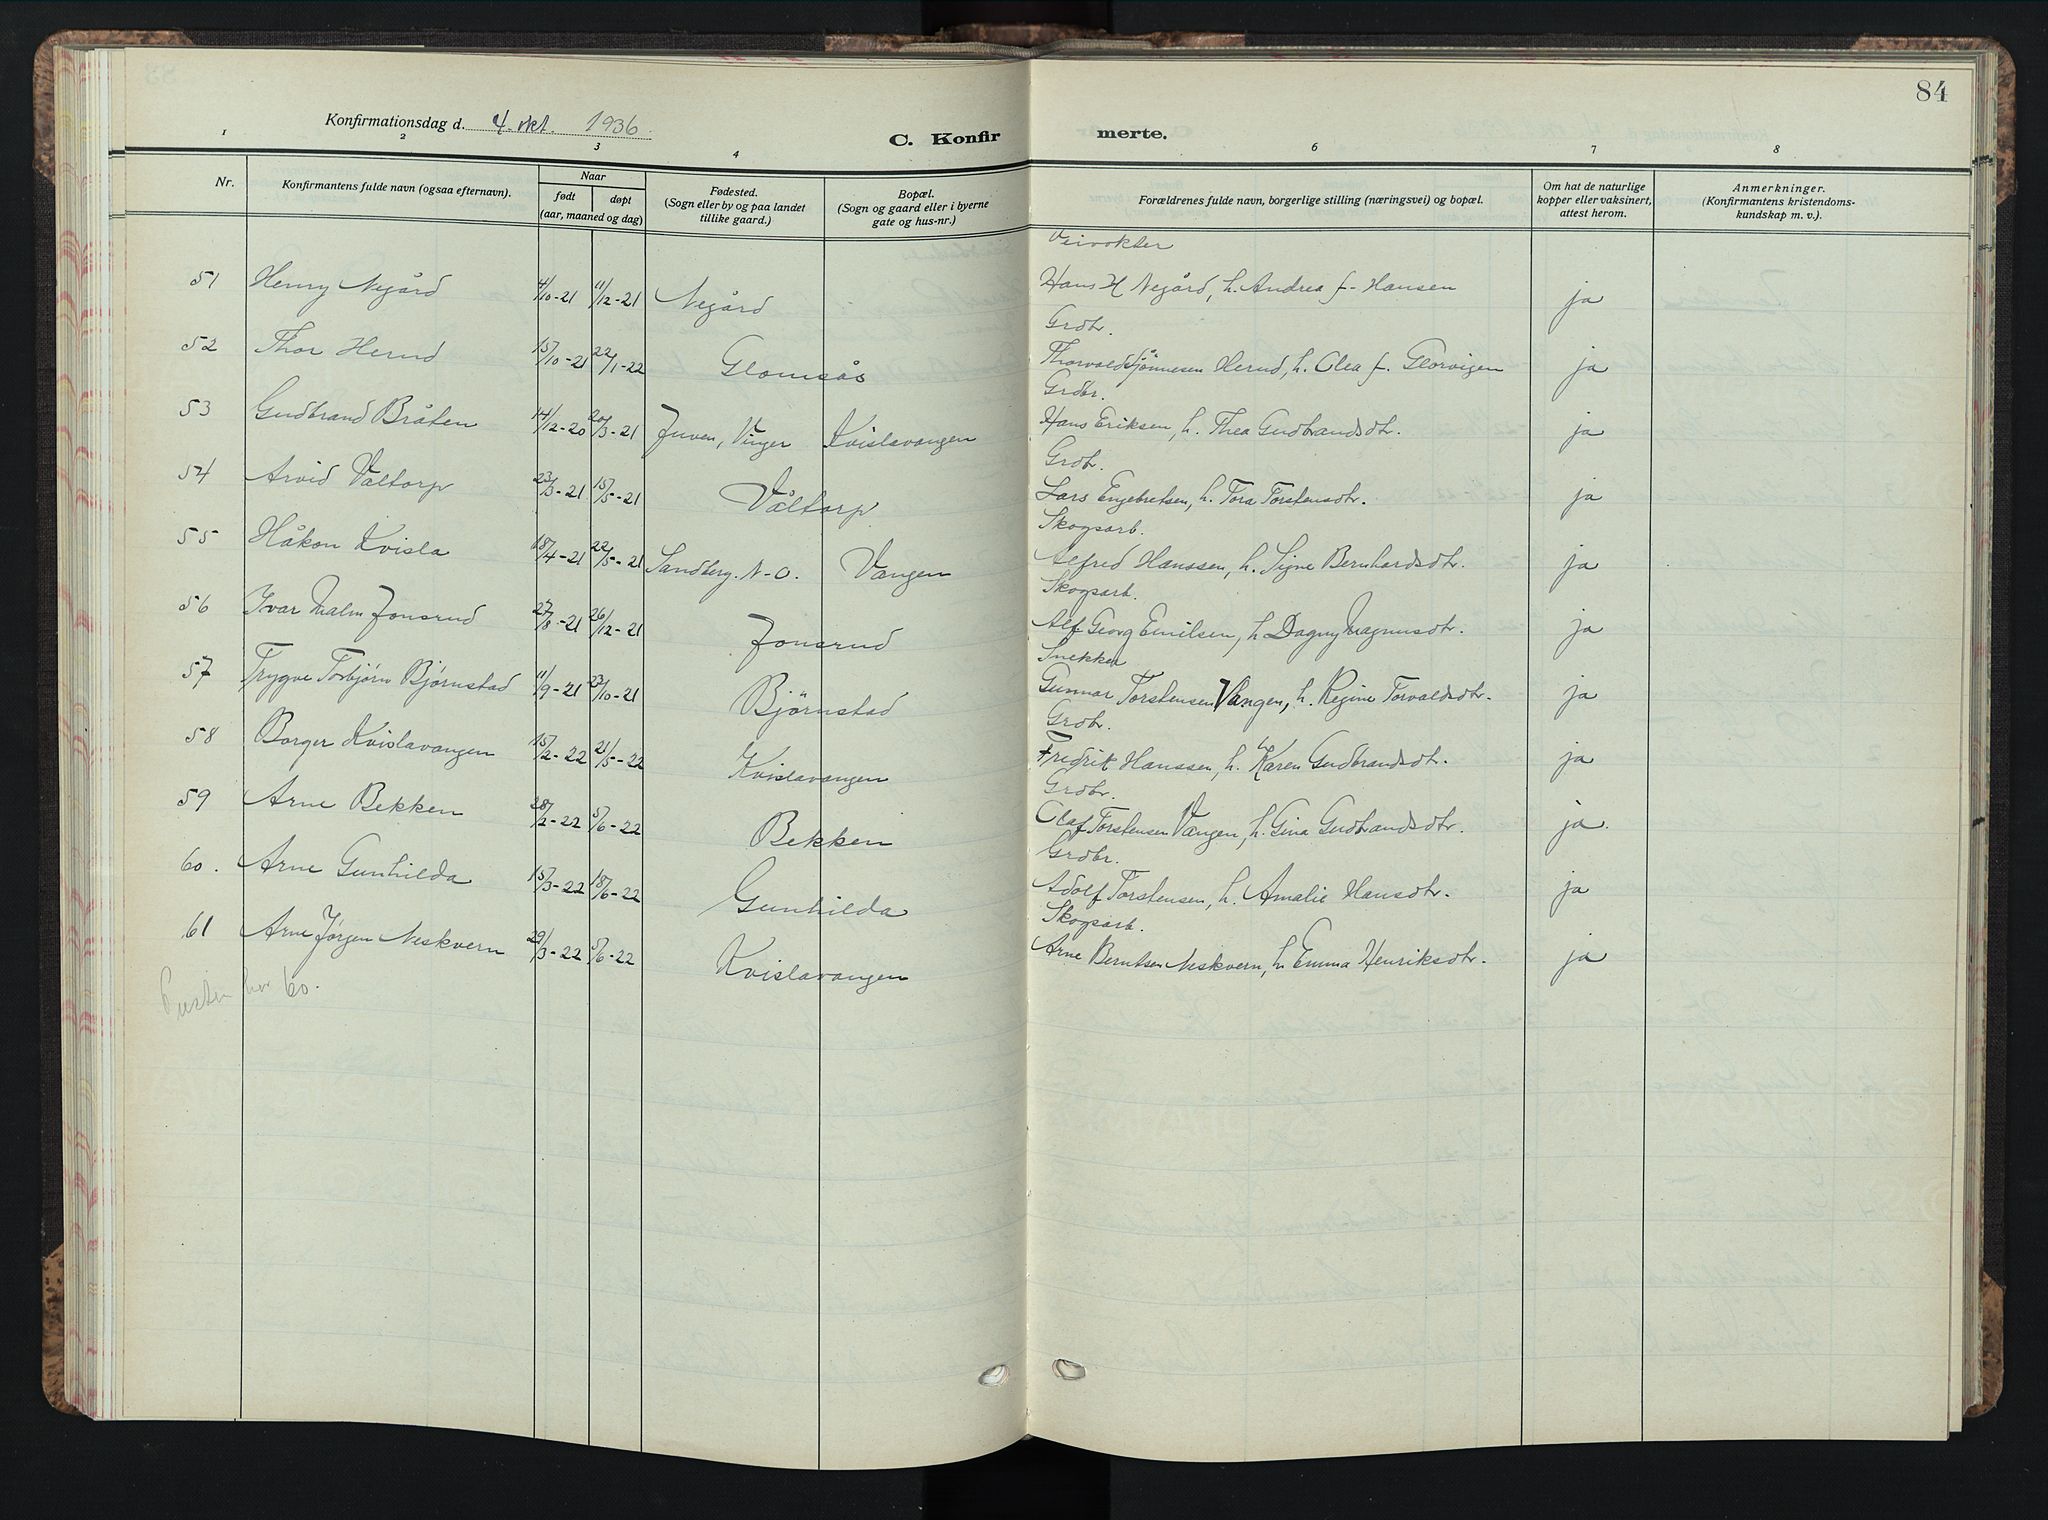 84
Konfirmationsdag d. 4. okt. 1936.
C. Konfirmerte.
1 2 3 4 6 7 8
Nr.
Konfirmantens fulde navn (ogsaa efternavn).
Naar
født døpt
(aar, maaned og dag)
Fødested.
(Sogn eller by og paa landet
tillike gaard.)
Bopæl.
(Sogn og gaard eller i byerne
gate og hus-nr.)
Forældrenes fulde navn, borgerlige stilling (næringsvei) og bopæl.
Om hat de naturlige
kopper eller vaksinert,
attest herom.
Anmerkninger.
(Konfirmantens kristendoms-
kundskap m. v.).
Veivokter
51 Henry Negård 4/10-21 11/12-21 Negård Hans H Negård, h. Andrea f. Hansen ja
Grdbr.
52 Thor Herud 15/10-21 22/1-22 Glomsås Thorvald Herud, h. Olea f. Glorvigen ja
Grdbr.
53 Gudbrand Bråten 14/12-20 20/3-21 Juven, Vinger Kvislavangen Hans Eriksen, h. Thea Gudbrandsdtr. ja
Grdb.
54 Arvid Våltorp 23/3-21 15/5-21 Våltorp Lars Engebretsen, h. Tora Torstensdtr. ja
Skogsarb.
55 Håkon Kvisla 18/4-21 22/5-21 Sandberg. N-O. Vangen Alfred Hanssen, h. Signe Bernhardsdtr. ja
Skogsarb.
56 Ivar Malm Jonsrud 27/8-21 26/12-21 Jonsrud Alf Georg Emilsen, h Dagny Magnusdtr. ja
Snekker
57 Trygve Torbjørn Björnstad 11/9-21 23/10-21 Björnstad Gunnar Torstensen Vangen, h. Regine Torvaldsdtr. ja
Grdbr.
58 Borger Kvislavangen 15/2-22 21/5-22 Kvislavangen Fredrik Hanssen, h. Karen Gudbrandsdtr. ja
Grdbr.
59 Arne Bekken 28/2-22 5/6-22 Bekken Olaf Torstensen Vangen, h. Gina Gudbrandsdtr. ja.
Grdbr.
60. Arne Gunhilda 15/3-22 18/6-22 Gunhilda Adolf Torstensen, h. Amalie Hansdtr. ja
Skogsarb.
61 Arne Jørgen Neskvern 29/3-22 5/6-22 Kvislavangen Arne Berntsen Neskvern, h Emma Henriksdtr. ja
har 60.